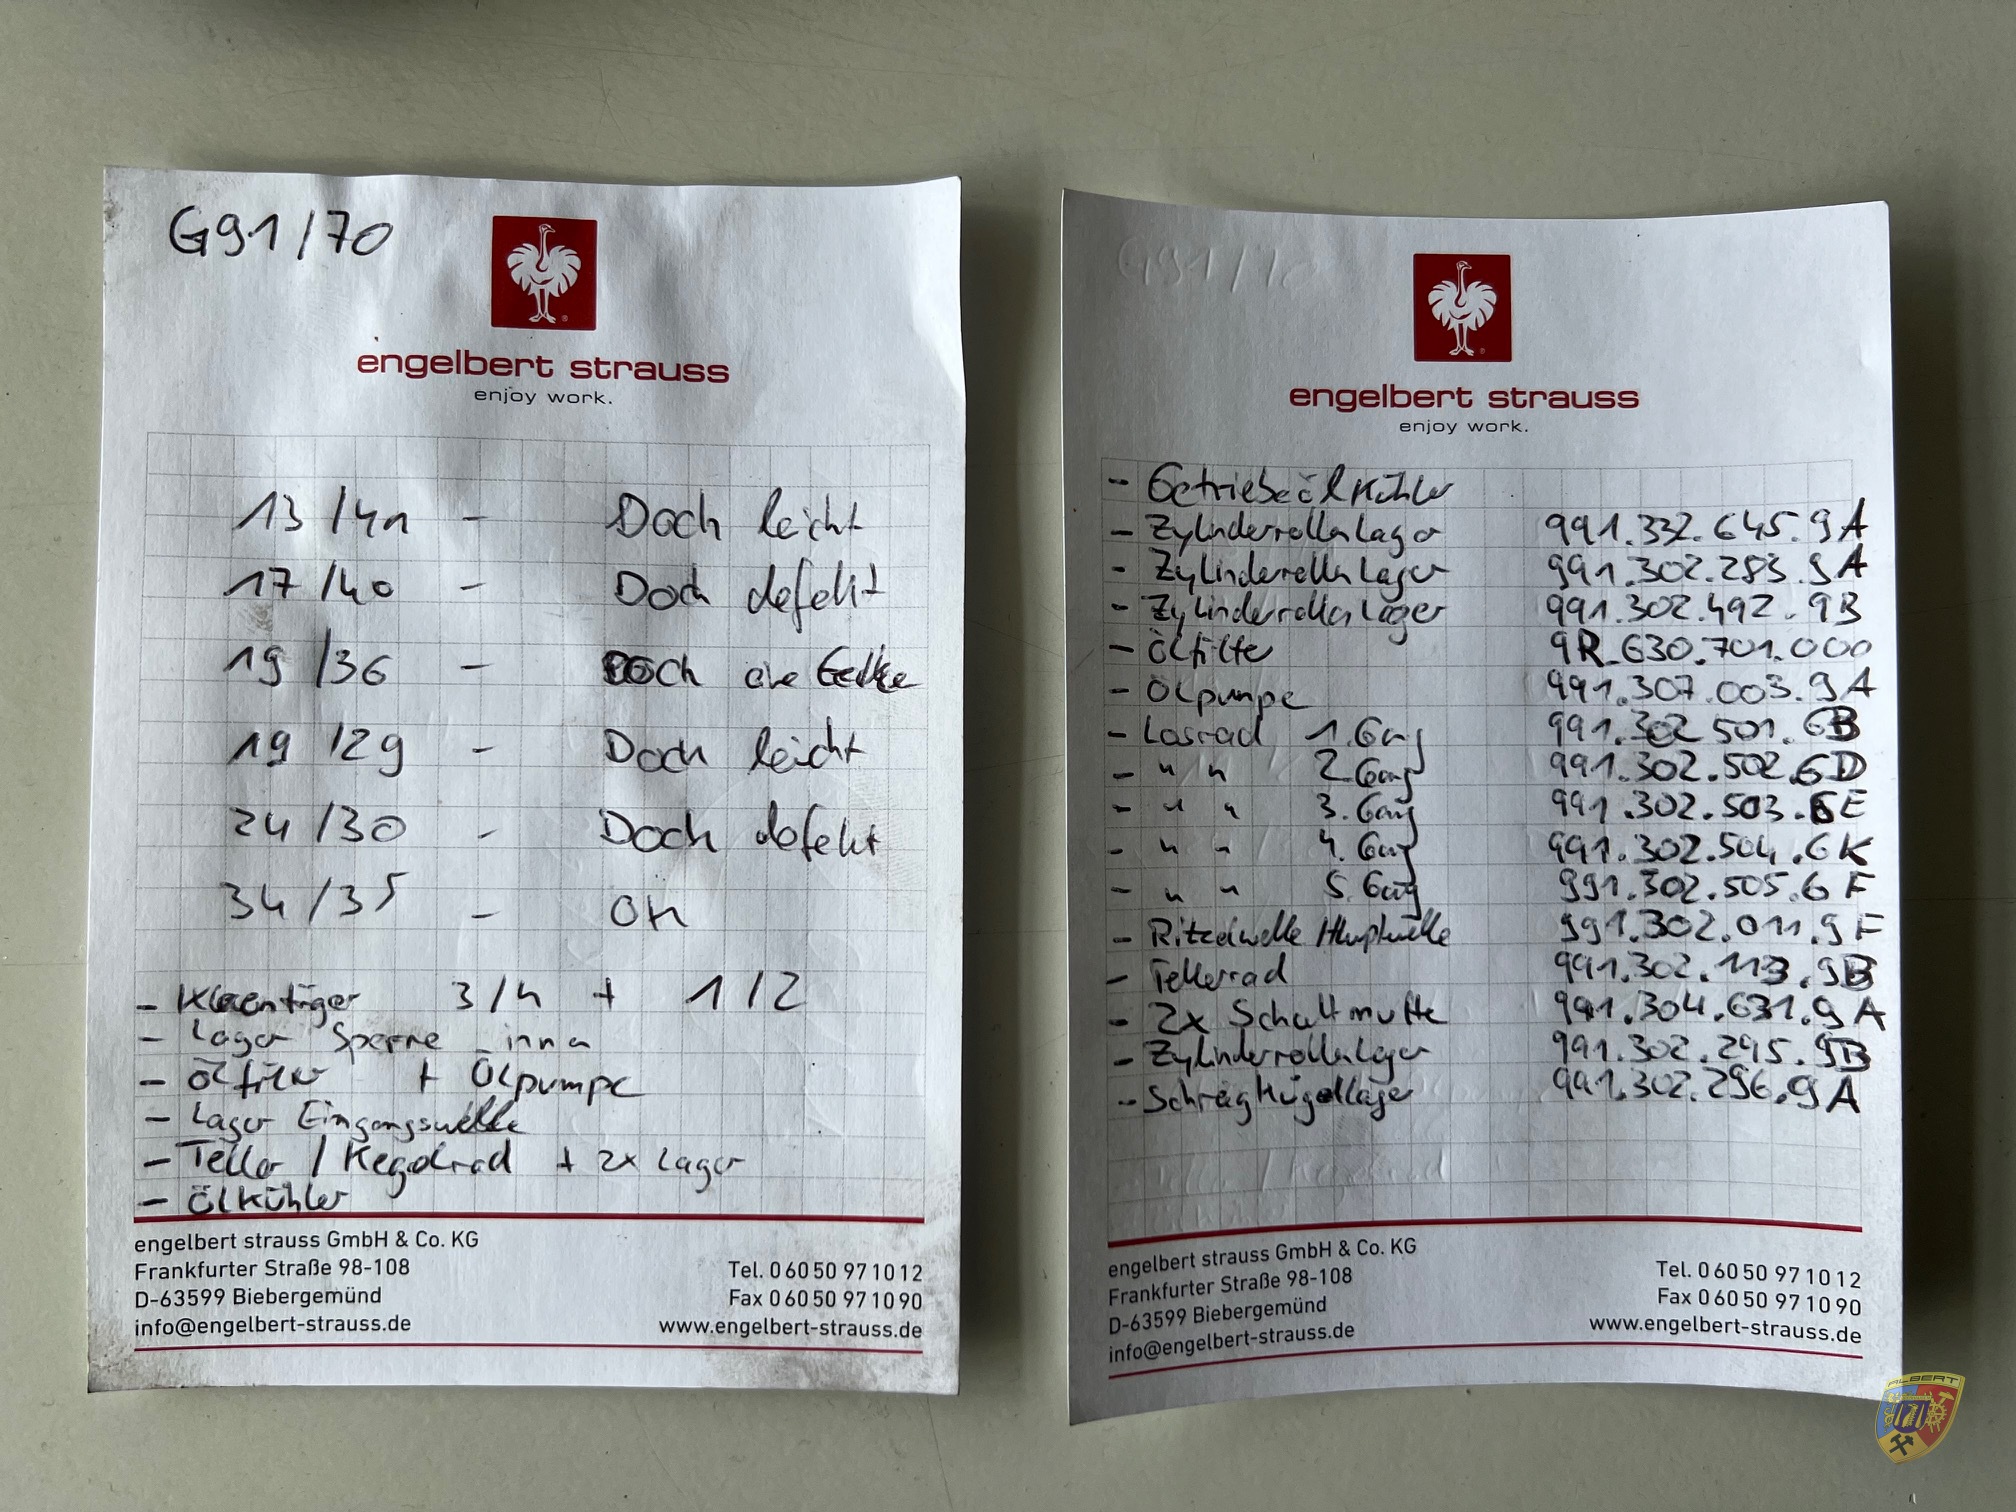 G91/70
engelbert strauss
enjoy work.
13/41 - Doch leicht
17/40 - Doch defekt
19/36 - Doch
19/29 - Doch leicht
24/30 - Doch defekt
34/35 - OK
- Klauenträger 3/4 + 1/2
- Lager Sperre innen
- Ölfilter + Ölpumpe
- Lager Eingangswelle
- Teller / Kegelrad + 2x Lager
- Ölkühler
engelbert strauss GmbH & Co. KG
Frankfurter Straße 98-108
D-63599 Biebergemünd
info@engelbert-strauss.de
Tel. 0 60 50 97 10 12
Fax 0 60 50 97 10 90
www.engelbert-strauss.de
G91/70
engelbert strauss
enjoy work.
- Getriebeölkühler
- Zylinderrollenlager 991.332.645.9A
- Zylinderrollenlager 991.302.283.9A
- Zylinderrollenlager 991.302.492.9B
- Ölfilter 9R_630.701.000
- Ölpumpe 991.307.003.9A
- Losrad 1.Gang 991.302.501.6B
- " " 2.Gang 991.302.502.6D
- " " 3.Gang 991.302.503.6E
- " " 4.Gang 991.302.504.6K
- " " 5.Gang 991.302.505.6F
- Ritzelwelle Hauptwelle 991.302.011.9F
- Tellerrad 991.302.113.9B
- 2x Schaltmuffe 991.304.631.9A
- Zylinderrollenlager 991.302.295.9B
- Schrägkugellager 991.302.296.9A
engelbert strauss GmbH & Co. KG
Frankfurter Straße 98-108
D-63599 Biebergemünd
info@engelbert-strauss.de
Tel. 0 60 50 97 10 12
Fax 0 60 50 97 10 90
www.engelbert-strauss.de
ALBERT